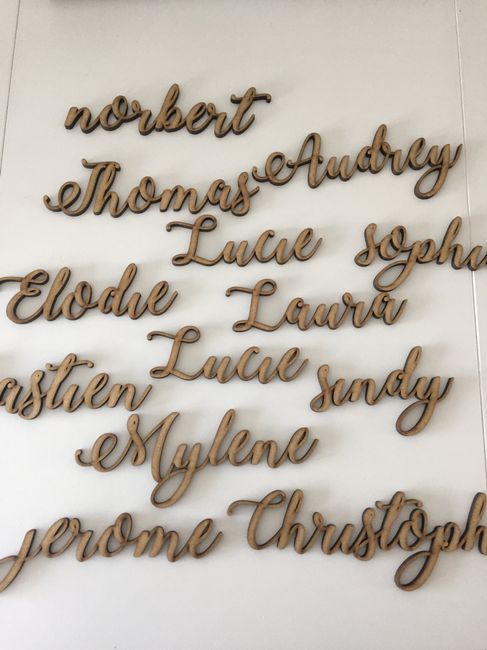 norbert
Audrey
Thomas
Lucie
sophi
Elodie
Laura
Lucie
astien
sindy
Mylene
jerome
Christoph